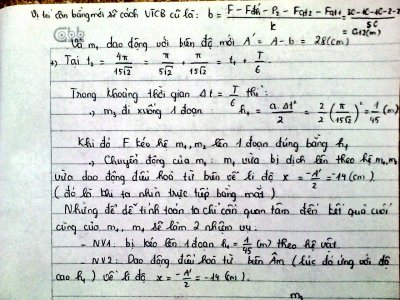 Vị trí cân bằng mới sẽ cách VTCB cũ là: b = (F - Fđh - P2 - Fqt2 - Fqt1)/
= 0,12 (m)
Và m1 dao động với biên độ mới A' = A - b = 28 (cm)
+) Tại t2 = 4π/(15√2) = π/(5√2) + π/(15√2) = t1 + T/6
Trong khoảng thời gian Δt = T/6 thì:
m2 đi xuống 1 đoạn: h1 = a.Δt²/2 = 2/2 (π/(15√2))² = 1/45 (m)
Khi đó F kéo hệ m1, m2 lên 1 đoạn đúng bằng h1
Chuyển động của m1: m1 vừa bị dịch lên theo hệ
vừa dao động điều hoà từ biên về li độ x = -A'/2 = -14 (cm)
(đó là khi ta nhìn trực tập bằng mắt)
Nhưng để dễ tính toán ta chỉ cần quan tâm đến kết quả cuối
cùng của m1, m1 sẽ làm 2 nhiệm vụ:
- NV1: bị kéo lên 1 đoạn h1 = 1/45 (m) theo hệ vật.
- NV2: Dao động điều hoà từ biên Âm (lúc đó ứng với độ
cao h1) về li độ x = -A'/2 = -14 (cm).